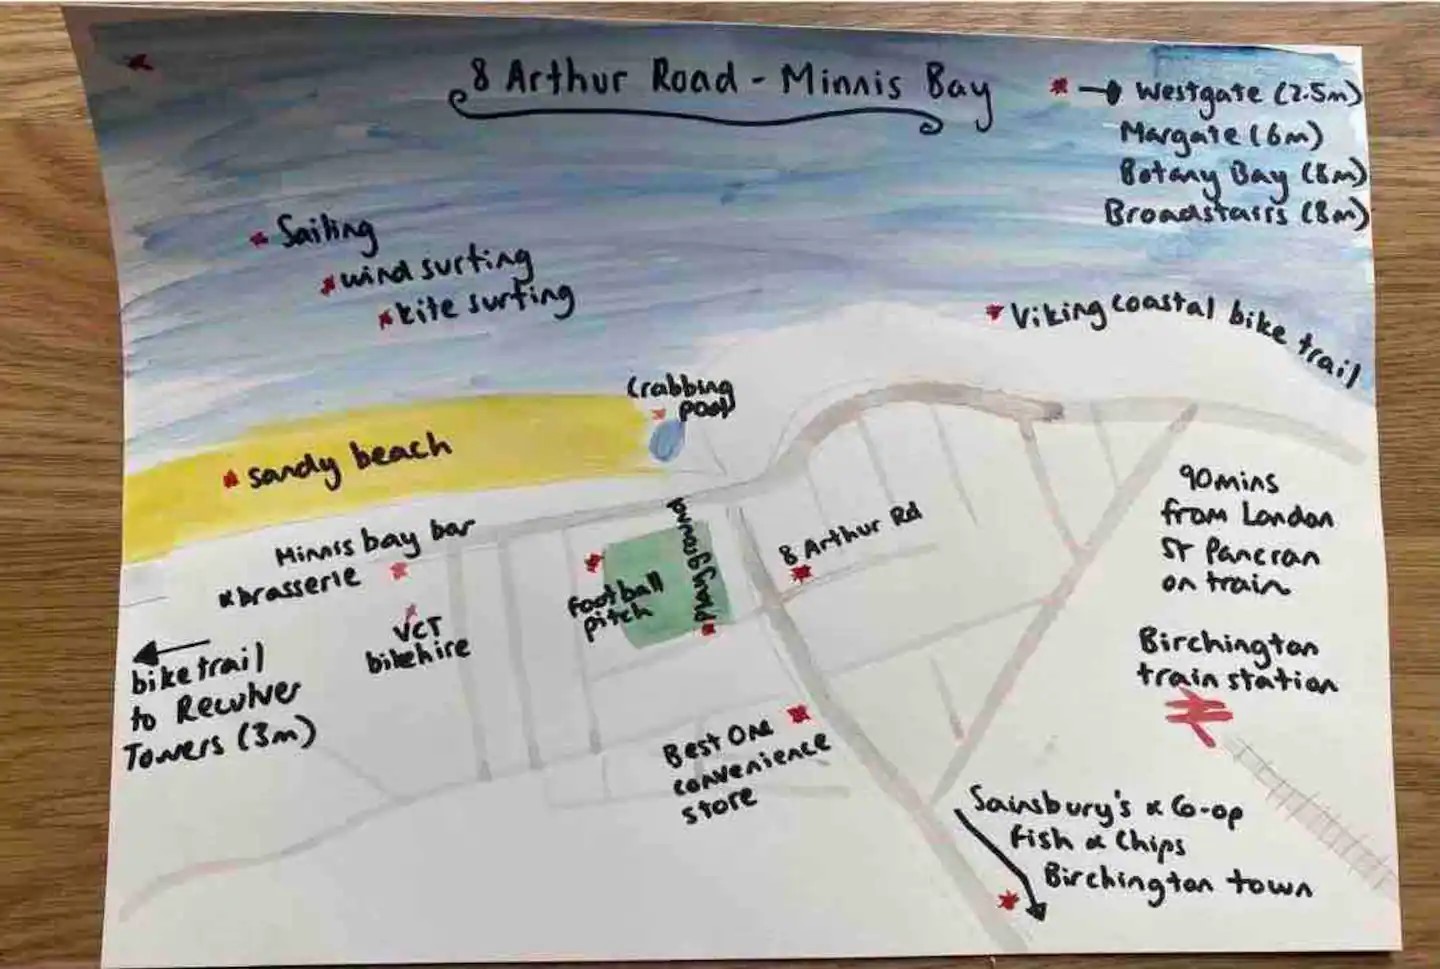 8 Arthur Road - Minnis Bay
→ Westgate (2.5m)
Margate (6m)
Botany Bay (8m)
Broadstairs (8m)
Sailing
wind surfing
kite surfing
Viking coastal bike trail
Crabbing
pool
sandy beach
Minnis bay bar
& brasserie
VCT
bikehire
football
pitch
playground
8 Arthur Rd
90mins
from London
St Pancran
on train
Birchington
train station
bike trail
to Reculver
Towers (3m)
Best One
convenience
store
Sainsbury's & Co-op
Fish & Chips
Birchington town